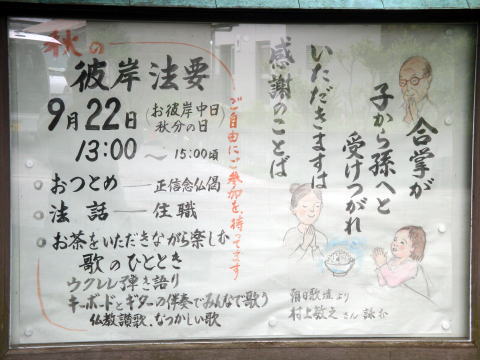 秋の
彼岸法要
9月22日
(お彼岸中日
秋分の日)
13:00～15:00頃
おつとめ — 正信念仏偈
法話 — 住職
お茶をいただきながら楽しむ
歌のひととき
ウクレレ弾き語り
キーボードとギターの伴奏でみんなで歌う
仏教讃歌、なつかしい歌
ご自由にご参加を、待ってます
合掌が
子から孫へと
受けつがれ
いただきますは
感謝のことば
朝日歌壇より
村上敏之さん詠む